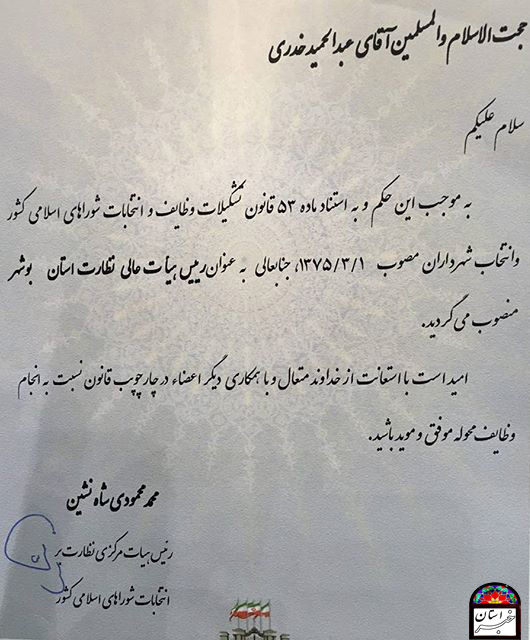 حجت الاسلام والمسلمین آقای عبدالحمید خدری
سلام علیکم
به موجب این حکم و به استناد ماده ۵۳ قانون تشکیلات وظایف و انتخابات شوراهای اسلامی کشور
وانتخاب شهرداران مصوب ۱۳۷۵/۳/۱، جنابعالی به عنوان رییس هیأت عالی نظارت استان بوشهر
منصوب می گردید.
امید است با استعانت از خداوند متعال و با همکاری دیگر اعضاء در چارچوب قانون نسبت به انجام
وظایف محوله موفق و موید باشید.
محمد محمودی شاه نشین
رئیس هیات مرکزی نظارت بر
انتخابات شوراهای اسلامی کشور
استان
خبر